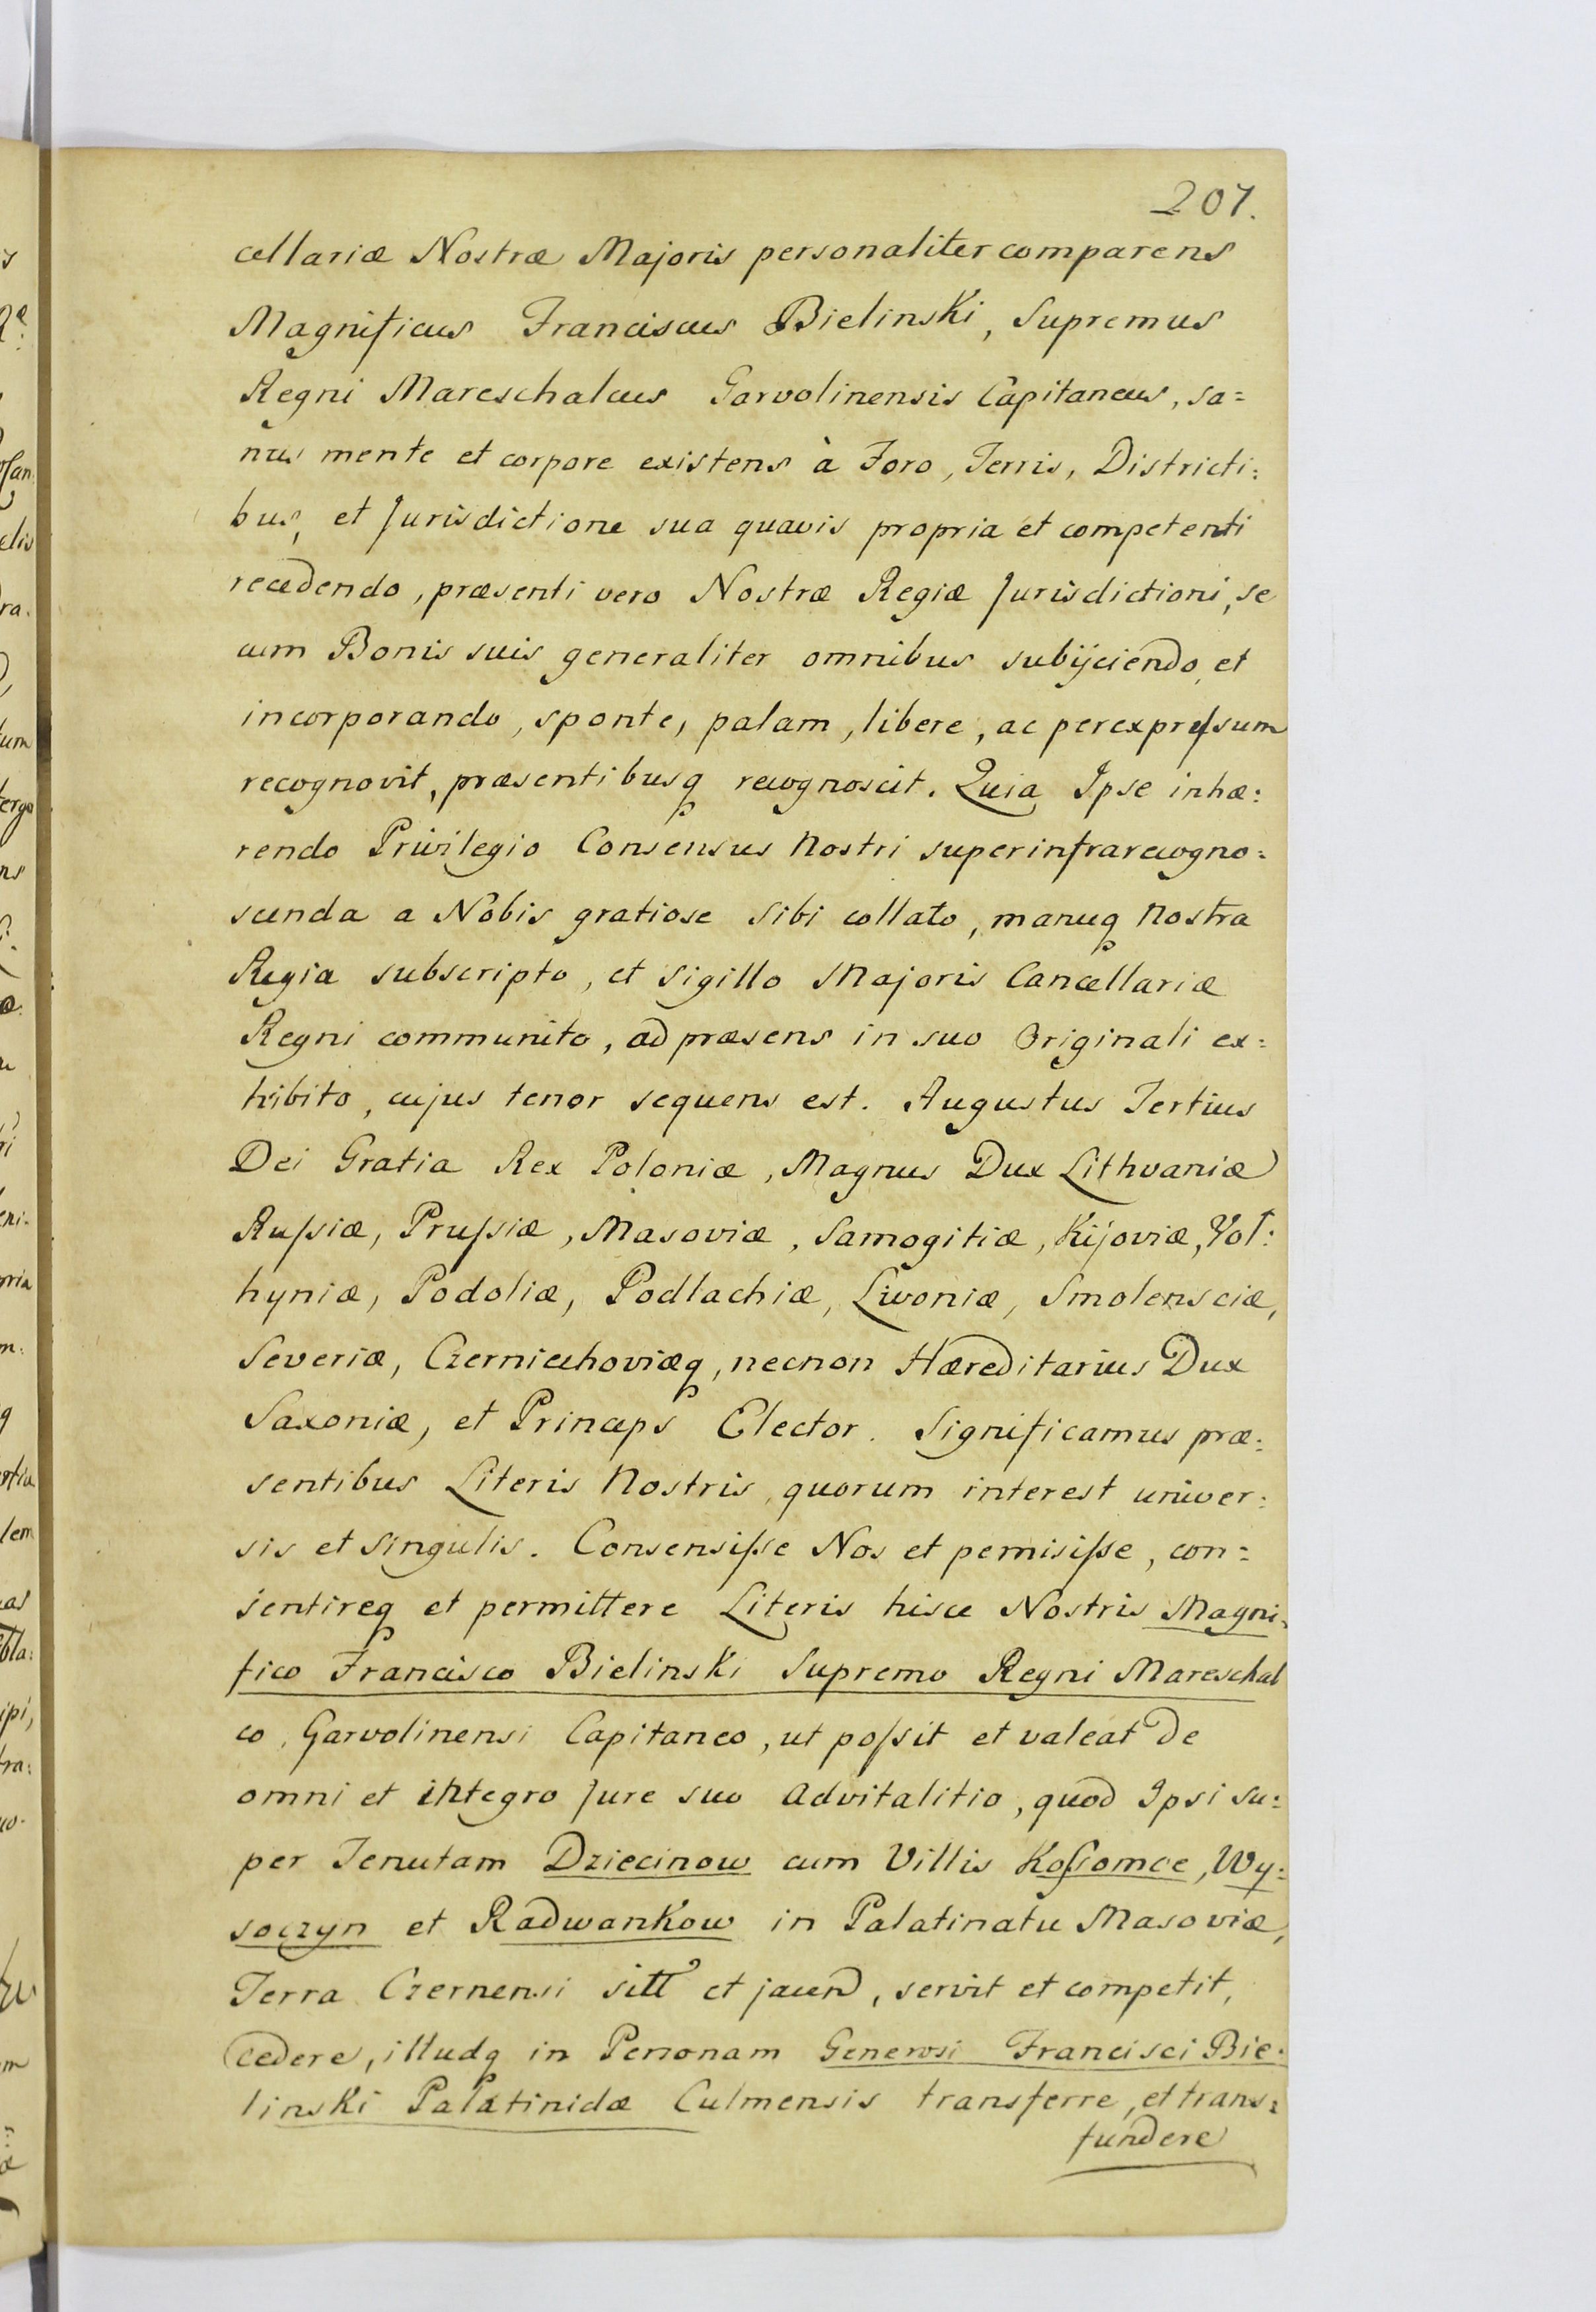 207.
cellariæ Nostræ Majoris personaliter comparens
Magnificus Franciscus Bielinski, Supremus
Regni Mareschalcus Garvolinensis Capitaneus, sa=
nus mente et corpore existens à Foro, Terris, Districti:
bus, et Jurisdictione sua quavis propria et competenti
recedendo, præsenti vero Nostræ Regiæ Jurisdictioni, se
cum Bonis suis generaliter omnibus subijciendo, et
incorporando, sponte, palam, libere, ac per expreſsum
recognovit, præsentibusq recognoscit. Quia Ipse inhæ:
rendo Privilegio Consensus Nostri super infrarecogno=
scenda a Nobis gratiose Sibi collato, manuq Nostra
Regia subscripto, et Sigillo Majoris Cancellariæ
Regni communito, ad præsens in suo Originali ex=
hibito, cujus tenor sequens est. Augustus Tertius
Dei Gratia Rex Poloniæ, Magnus Dux Lithvaniæ
Ruſsiæ, Pruſsiæ, Masoviæ, Samogitiæ, Kijoviæ, Vol:
hyniæ, Podoliæ, Podlachiæ, Livoniæ, Smolensciæ,
Severiæ, Czerniechoviæq, necnon Hæreditarius Dux
Saxoniæ, et Princeps Elector. Significamus præ:
sentibus Literis Nostris, quorum interest univer:
sis et Singulis. Consensiſse Nos et pemisiſse, con=
sentireq et permittere Literis hisce Nostris Magni:
fico Francisco Bielinski Supremo Regni Mareschal
co, Garvolinensi Capitaneo, ut poſsit et valeat de
omni et integro Jure suo Advitalitio, quod Ipsi su:
per Tenutam Dziecinow cum Villis Koſsomce, Wy:
soczyn et Radwankow in Palatinatu Masoviæ,
Terra Czernensi sitt et jacen, servit et competit,
cedere, illudq in Personam Generosi Francisci Bie:
linski Palatinidæ Culmensis transferre, et trans:
fundere